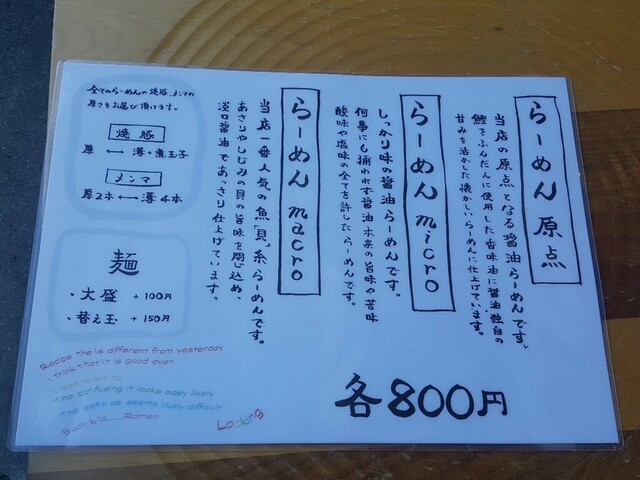 らーめん 原点
当店の原点となる醤油らーめんです。
鰹をふんだんに使用した香味油に醤油独自の
甘みを活かした懐かしいらーめんに仕上げています。
らーめん micro
しっかり味の醤油らーめんです。
何事にも捕われず醤油本来の旨味や苦味
酸味や塩味の全てを許したらーめんです。
らーめん macro
当店一番人気の魚「貝」系らーめんです。
あさりやしじみの貝の旨味を閉じ込め、
淡口醤油であっさり仕上げています。
各800円
全てのらーめんの焼豚、メンマの
厚さをお選び頂けます。
焼豚
厚 ⟷ 薄+煮玉子
メンマ
厚2本 ⟷ 薄4本
麺
・大盛 +100円
・替え玉 +150円
Recipe the is different from yesterday
I think that it is good even
The confusing it looks easy likely
The easy as seems likely difficult
Such bla......Ramen
Locking